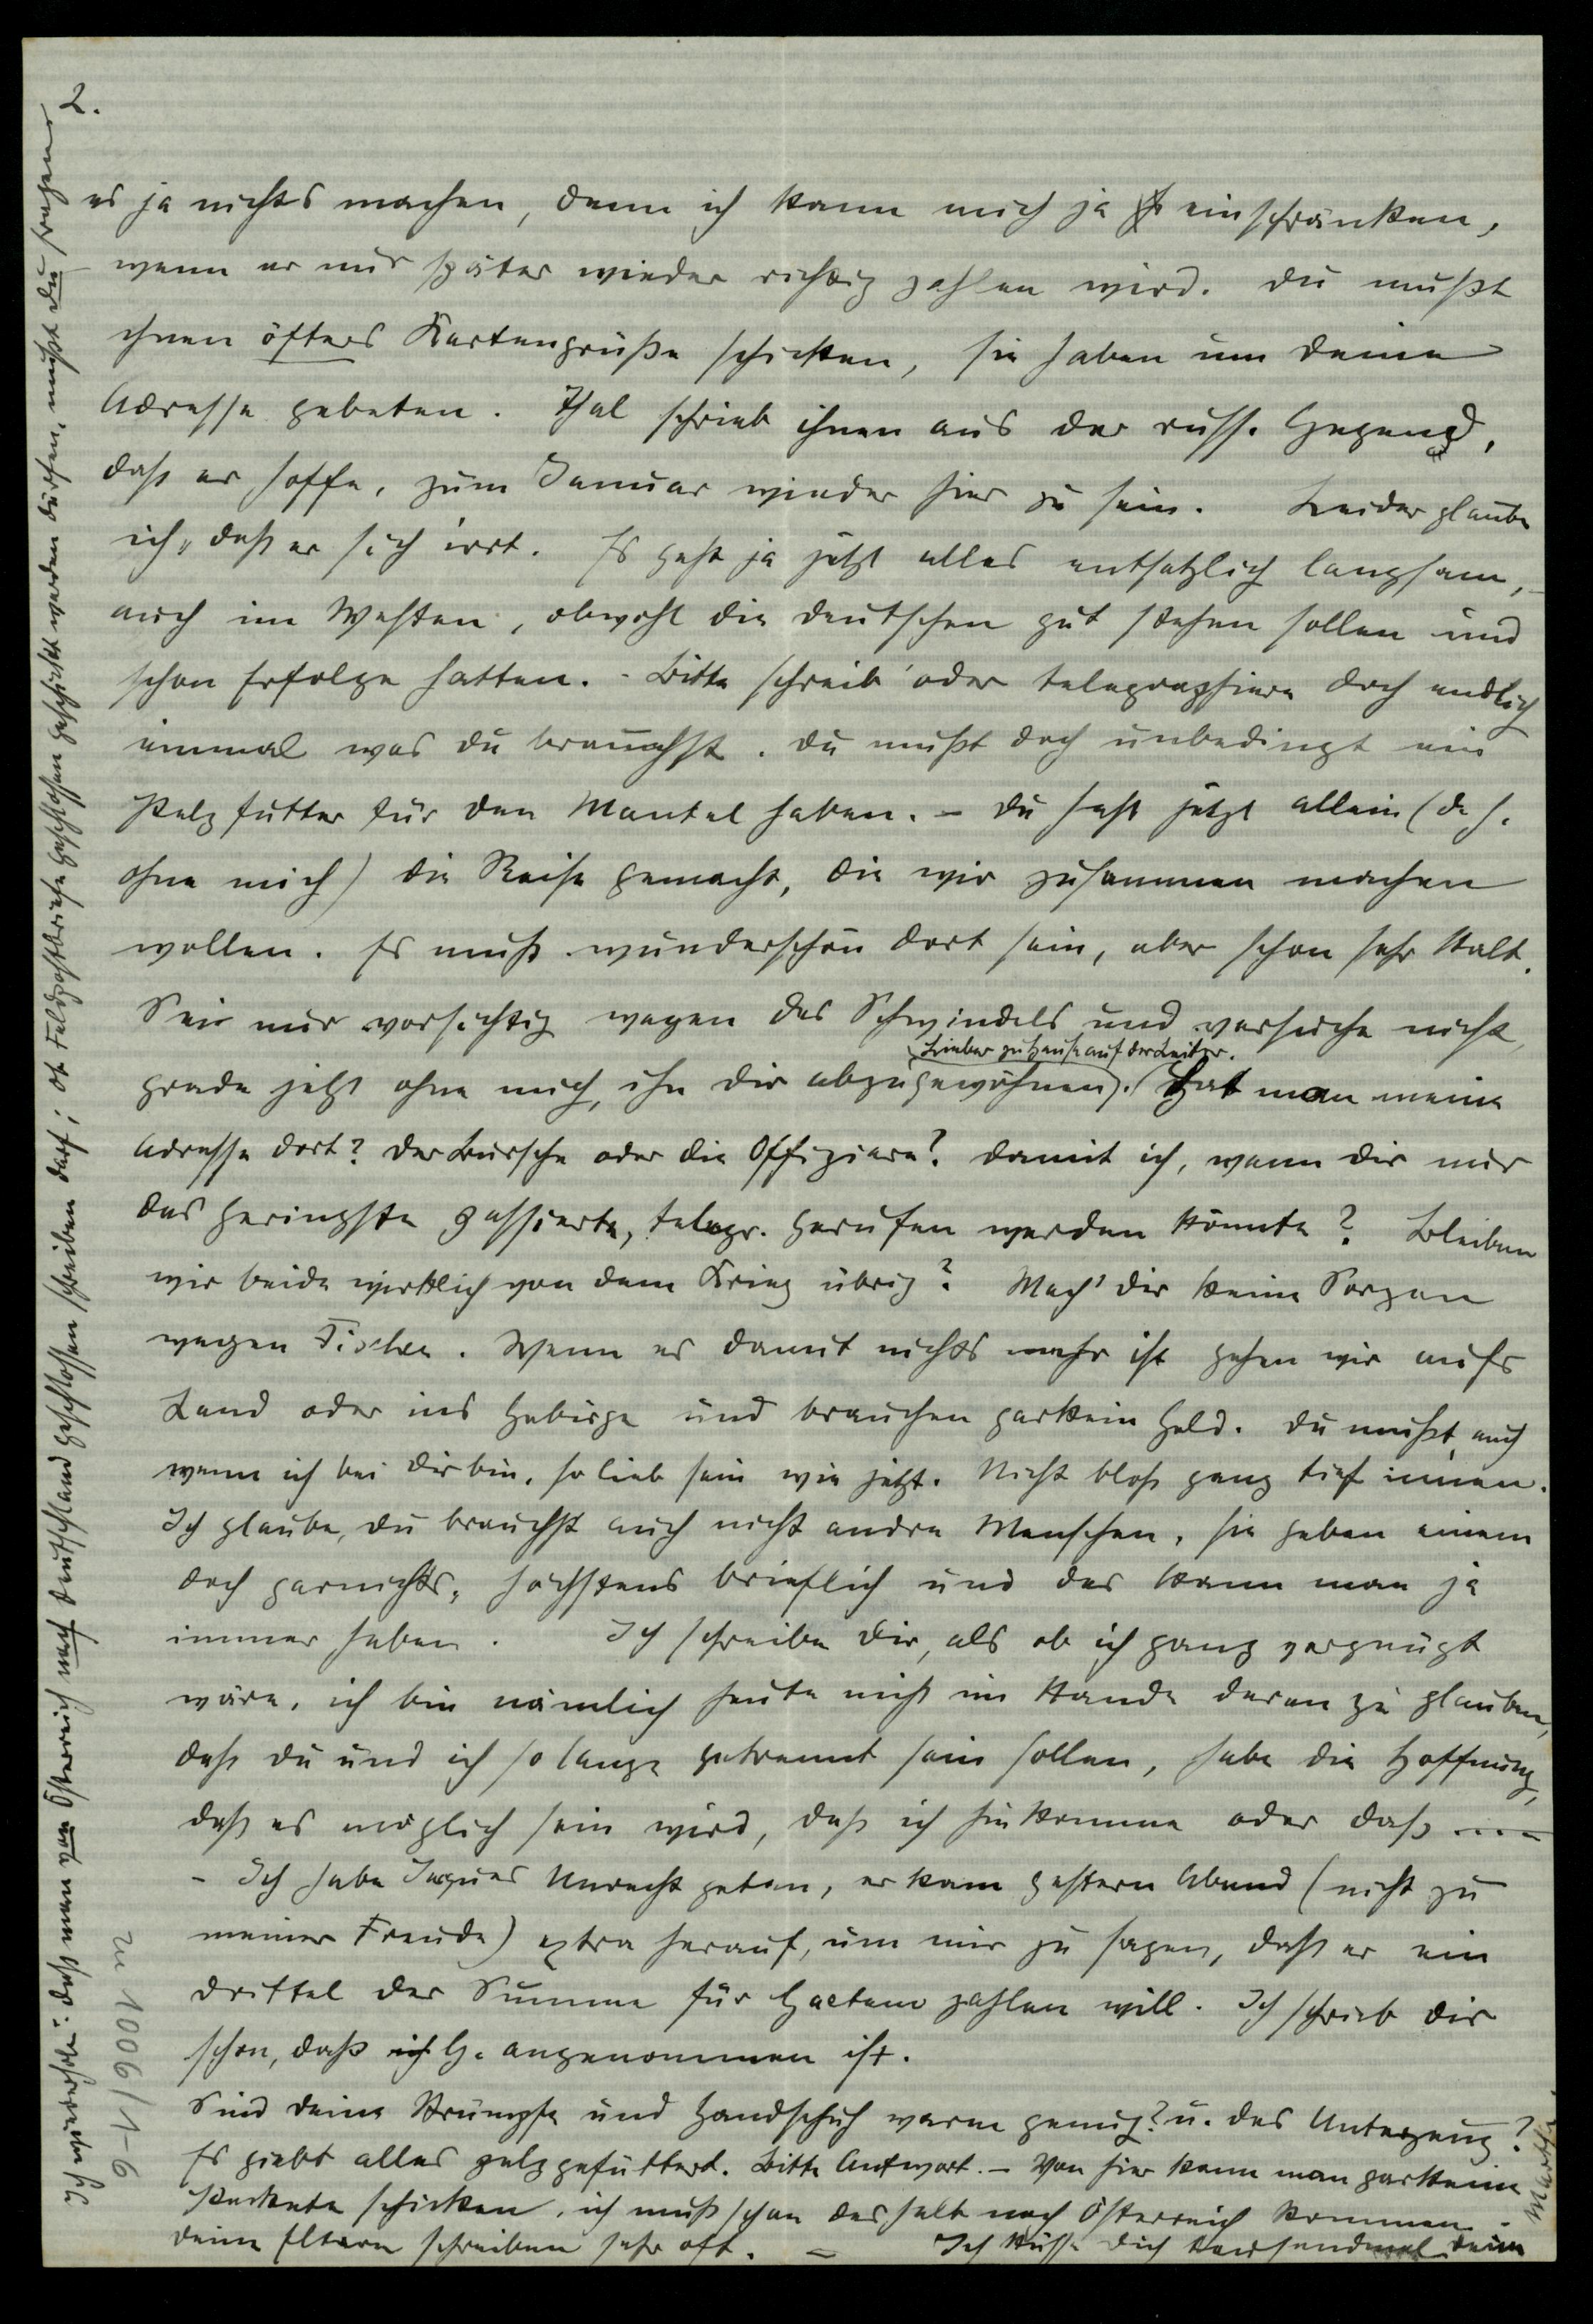 2.
es ja nichts machen, denn ich kann mich ja einschränken,
wenn er nur später wieder richtig zahlen wird. Du mußt
ihnen öfters Kartengrüße schicken, sie haben um Deine
Adresse gebeten. Thal schrieb ihnen aus der russ. Gegend,
daß er hoffe, zum Januar wieder hier zu sein. Leider glaube
ich, daß er sich irrt. Es geht ja jetzt alles entsetzlich langsam,
auch im Westen, obwohl die Deutschen gut stehen sollen und
schon Erfolge hatten. - Bitte schreib oder telegraphiere doch endlich
einmal was Du brauchst. Du mußt doch unbedingt ein
Pelzfutter für den Mantel haben. – Du hast jetzt allein (d. h.
ohne mich) die Reise gemacht, die wir zusammen machen
wollen. Es muß wunderschön dort sein, aber schon sehr kalt.
Sei nur vorsichtig wegen des Schwindels und versuche nicht,
grade jetzt ohne mich, ihn Dir abzugewöhnen. (Lieber zuhause auf der Leiter.) Hat man meine
Adresse dort? Der Bursche oder die Offiziere? Damit ich, wenn Dir nur
das geringste passierte, telegr. gerufen werden könnte? Bleiben
wir beide wirklich von dem Krieg übrig? Mach' Dir keine Sorgen
wegen Fischer. Wenn es damit nichts mehr ist gehen wir aufs
Land oder ins Gebirge und brauchen garkein Geld. Du mußt, auch
wenn ich bei Dir bin, so lieb sein wie jetzt. Nicht bloß ganz tief innen.
Ich glaube, Du brauchst auch nicht andre Menschen, sie geben einem
doch garnichts, höchstens brieflich und das kann man ja
immer haben. Ich schreibe Dir, als ob ich ganz vergnügt
wäre, ich bin nämlich heute nicht im Stande daran zu glauben,
daß Du und ich so lange getrennt sein sollen, habe die Hoffnung,
daß es möglich sein wird, daß ich hinkomme oder daß ....
- Ich habe Jaques Unrecht getan, er kam gestern Abend (nicht zu
meiner Freude) extra herauf, um mir zu sagen, daß er ein
Drittel der Summe für Gaetano zahlen will. Ich schrieb Dir
schon, daß ich G. angenommen ist.
Sind Deine Strümpfe und Handschuh warm genug? u. das Unterzeug?
Es giebt alles pelzgefüttert. Bitte Antwort. – Von hier kann man garkeine
Packete schicken, ich muß schon deshalb nach Österreich kommen. -
Deine Eltern schreiben sehr oft. – Ich küsse Dich tausendmal Deine
Martha.
Ich wiederhole: daß man von Österreich nach Deutschland geschlossen schreiben darf; ob Feldpostbriefe geschlossen geschickt werden dürfen, mußt Du fragen
zu 1006/1-6